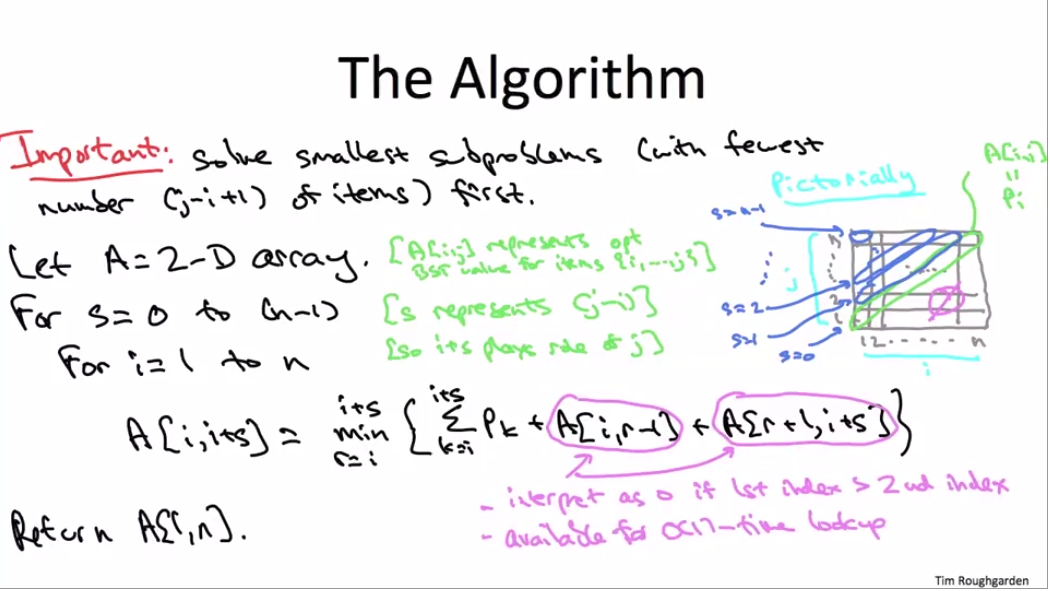 The Algorithm
Important: solve smallest subproblems (with fewest
number (j-i+1) of items) first.
Let A = 2-D array. [A[i,j] represents opt
BST value for items {i,...,j}]
For s = 0 to (n-1) [s represents (j-i)]
For i = 1 to n [so i+s plays role of j]
A[i,i+s] = min_{r=i}^{i+s} { ∑_{k=i}^{i+s} Pk + A[i,r-1] + A[r+1,i+s] }
- interpret as 0 if 1st index > 2nd index
- available for O(1)-time lookup
Return A[1,n].
Pictorially
A[i,i]
=
Pi
s=n-1
n
j
s=2
2
s=1
1
s=0
1 2 ...... n
i
Tim Roughgarden